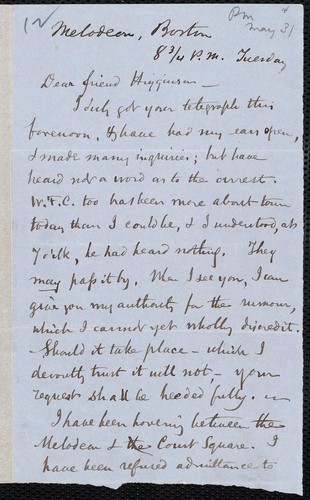 Pm
May 31
Melodeon, Boston
8 3/4 P.M. Tuesday
Dear friend Higginson –
I duly got your telegraph this
forenoon, & have had my ears open,
& made many inquiries; but have
heard not a word as to the arrest.
W.F.C. too has been more about town
today than I could be, & I understood, at
7 o'clk, he had heard nothing. They
may pass it by. When I see you, I can
give you my authority for the rumour,
which I cannot yet wholly discredit.
– Should it take place – which I
devoutly trust it will not, – your
request shall be heeded fully.
I have been hovering between the
Melodeon & the Court Square. I
have been refused admittance to